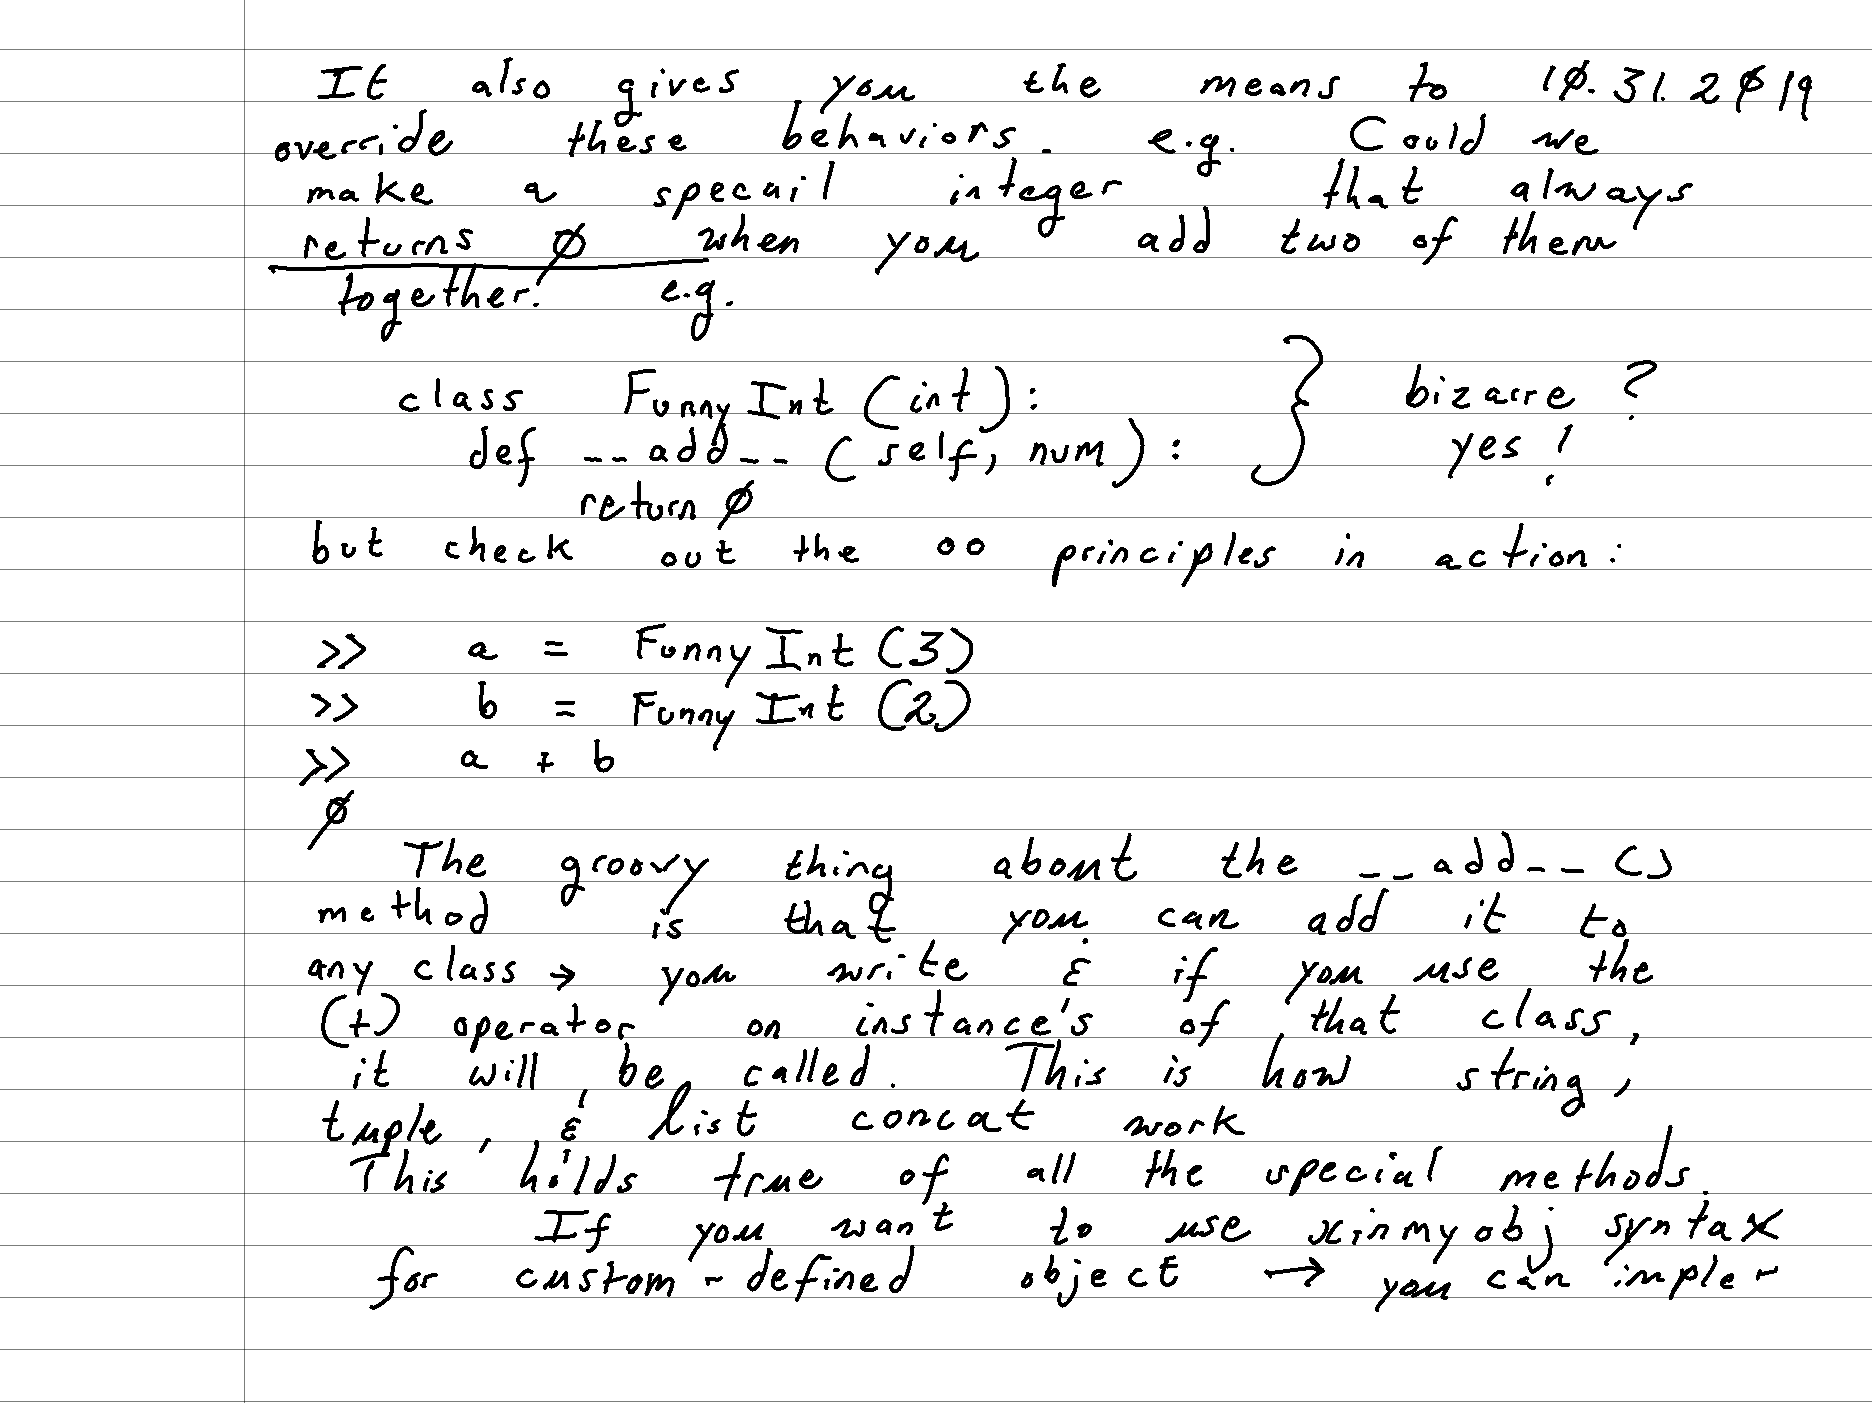 It also gives you the means to 10.31.2019
override these behaviors. e.g. Could we
make a specail integer that always
returns 0 when you add two of them
together. e.g.
class FunnyInt (int): } bizarre?
def __add__ (self, num): yes!
return 0
but check out the OO principles in action:
>> a = FunnyInt (3)
>> b = FunnyInt (2)
>> a + b
0
The groovy thing about the __add__ ()
method is that you can add it to
any class → you write & if you use the
(+) operator on instance's of that class,
it will be called. This is how string,
tuple, & list concat work
This holds true of all the special methods.
If you want to use xinmyobj syntax
for custom-defined object → you can imple-